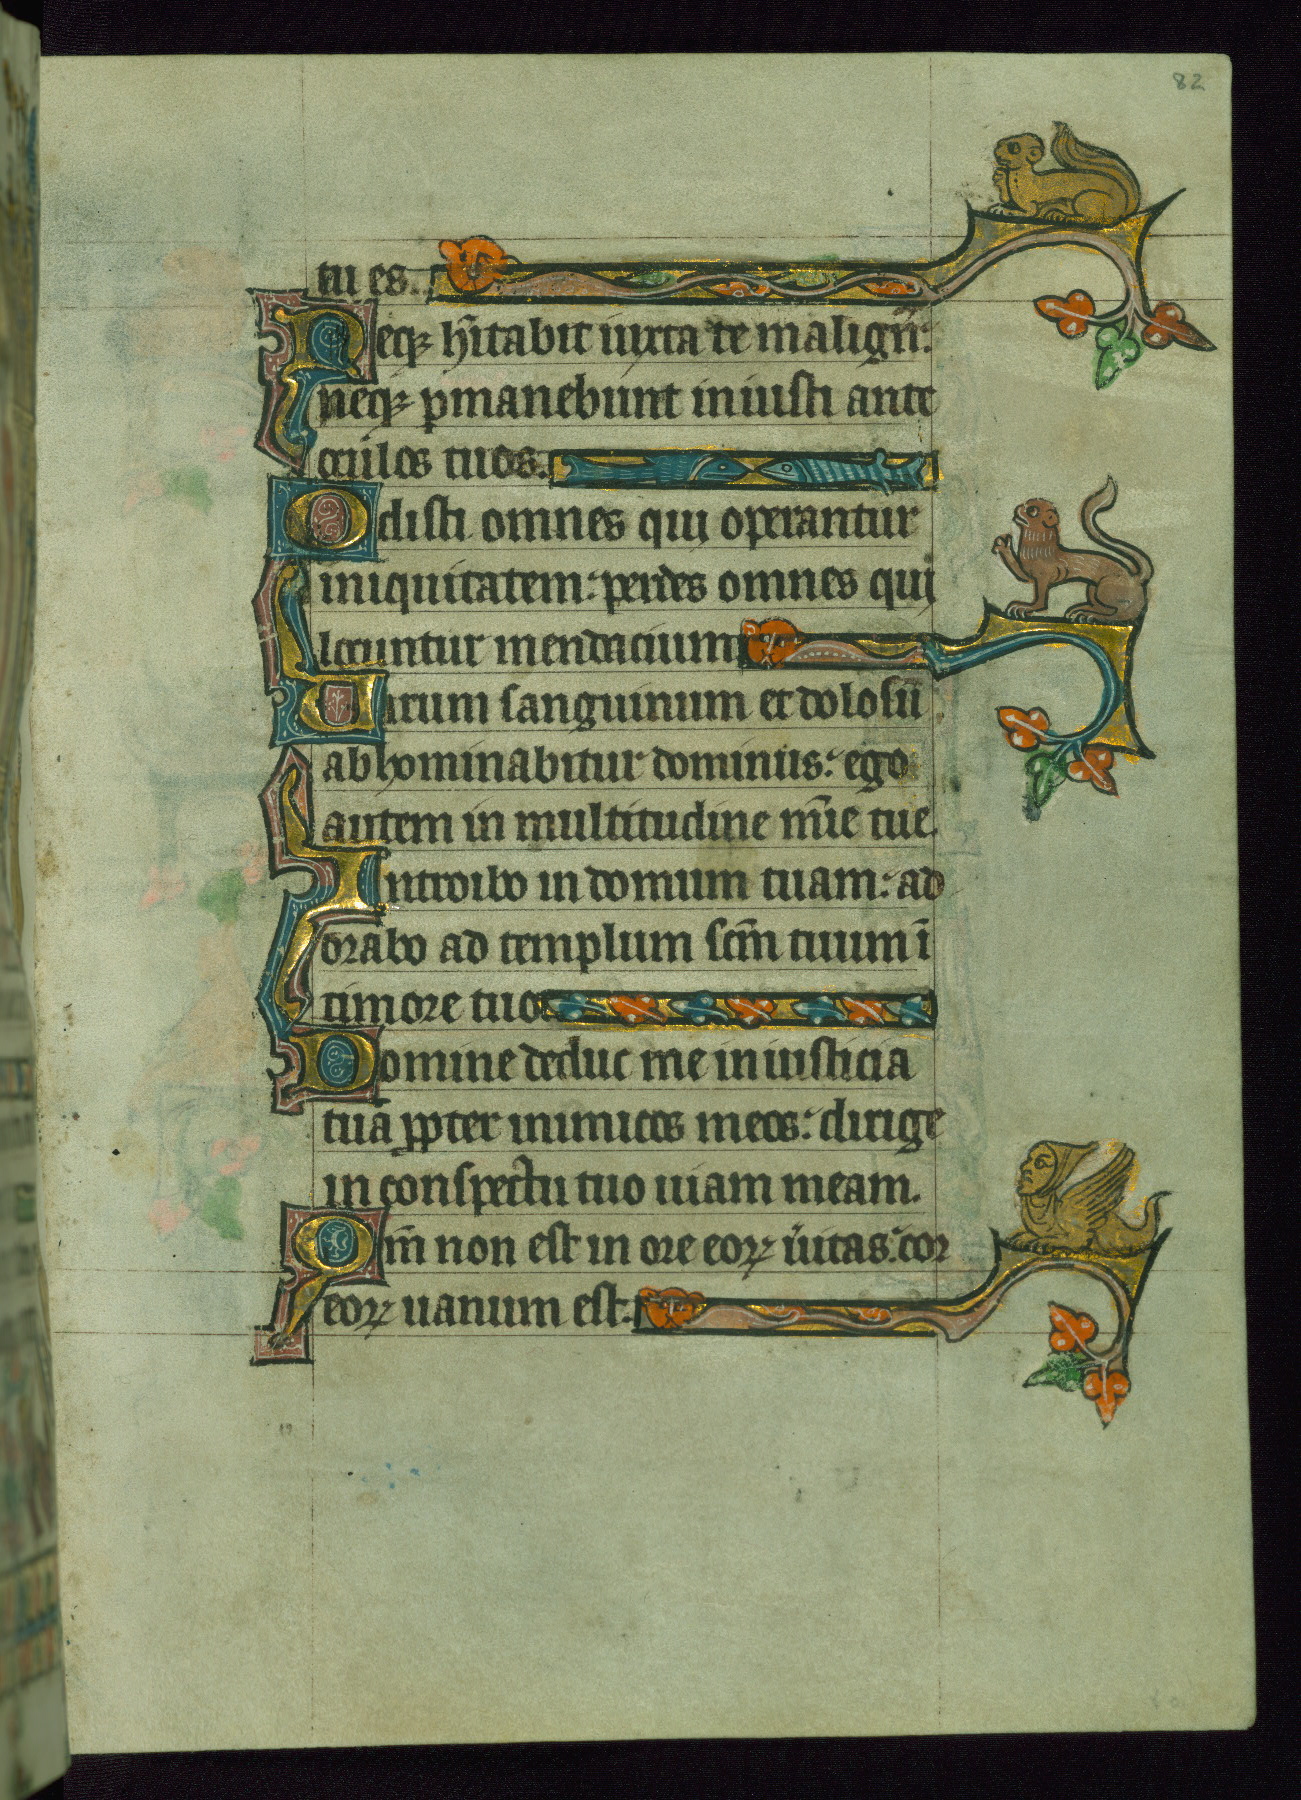 82
tu es.
Neqꝫ hītabit iuxta te malign᷑:
neqꝫ ꝑmanebunt iniusti ante
oculos tuos.
Odisti omnes qui operantur
iniquitatem: perdes omnes qui
locuntur mendacium
Uirum sanguinum et dolosū
abhominabitur dominus: ego
autem in multitudine mīe tue.
Introibo in domum tuam: ad
orabo ad templum scm̄ tuum ī
timore tuo
Domine deduc me in iusticia
tuā ꝓpter inimicos meos: dirige
in conspectu tuo uiam meam.
Qm̄ non est in ore eoꝝ ùitas: cor
eoꝝ uanum est.